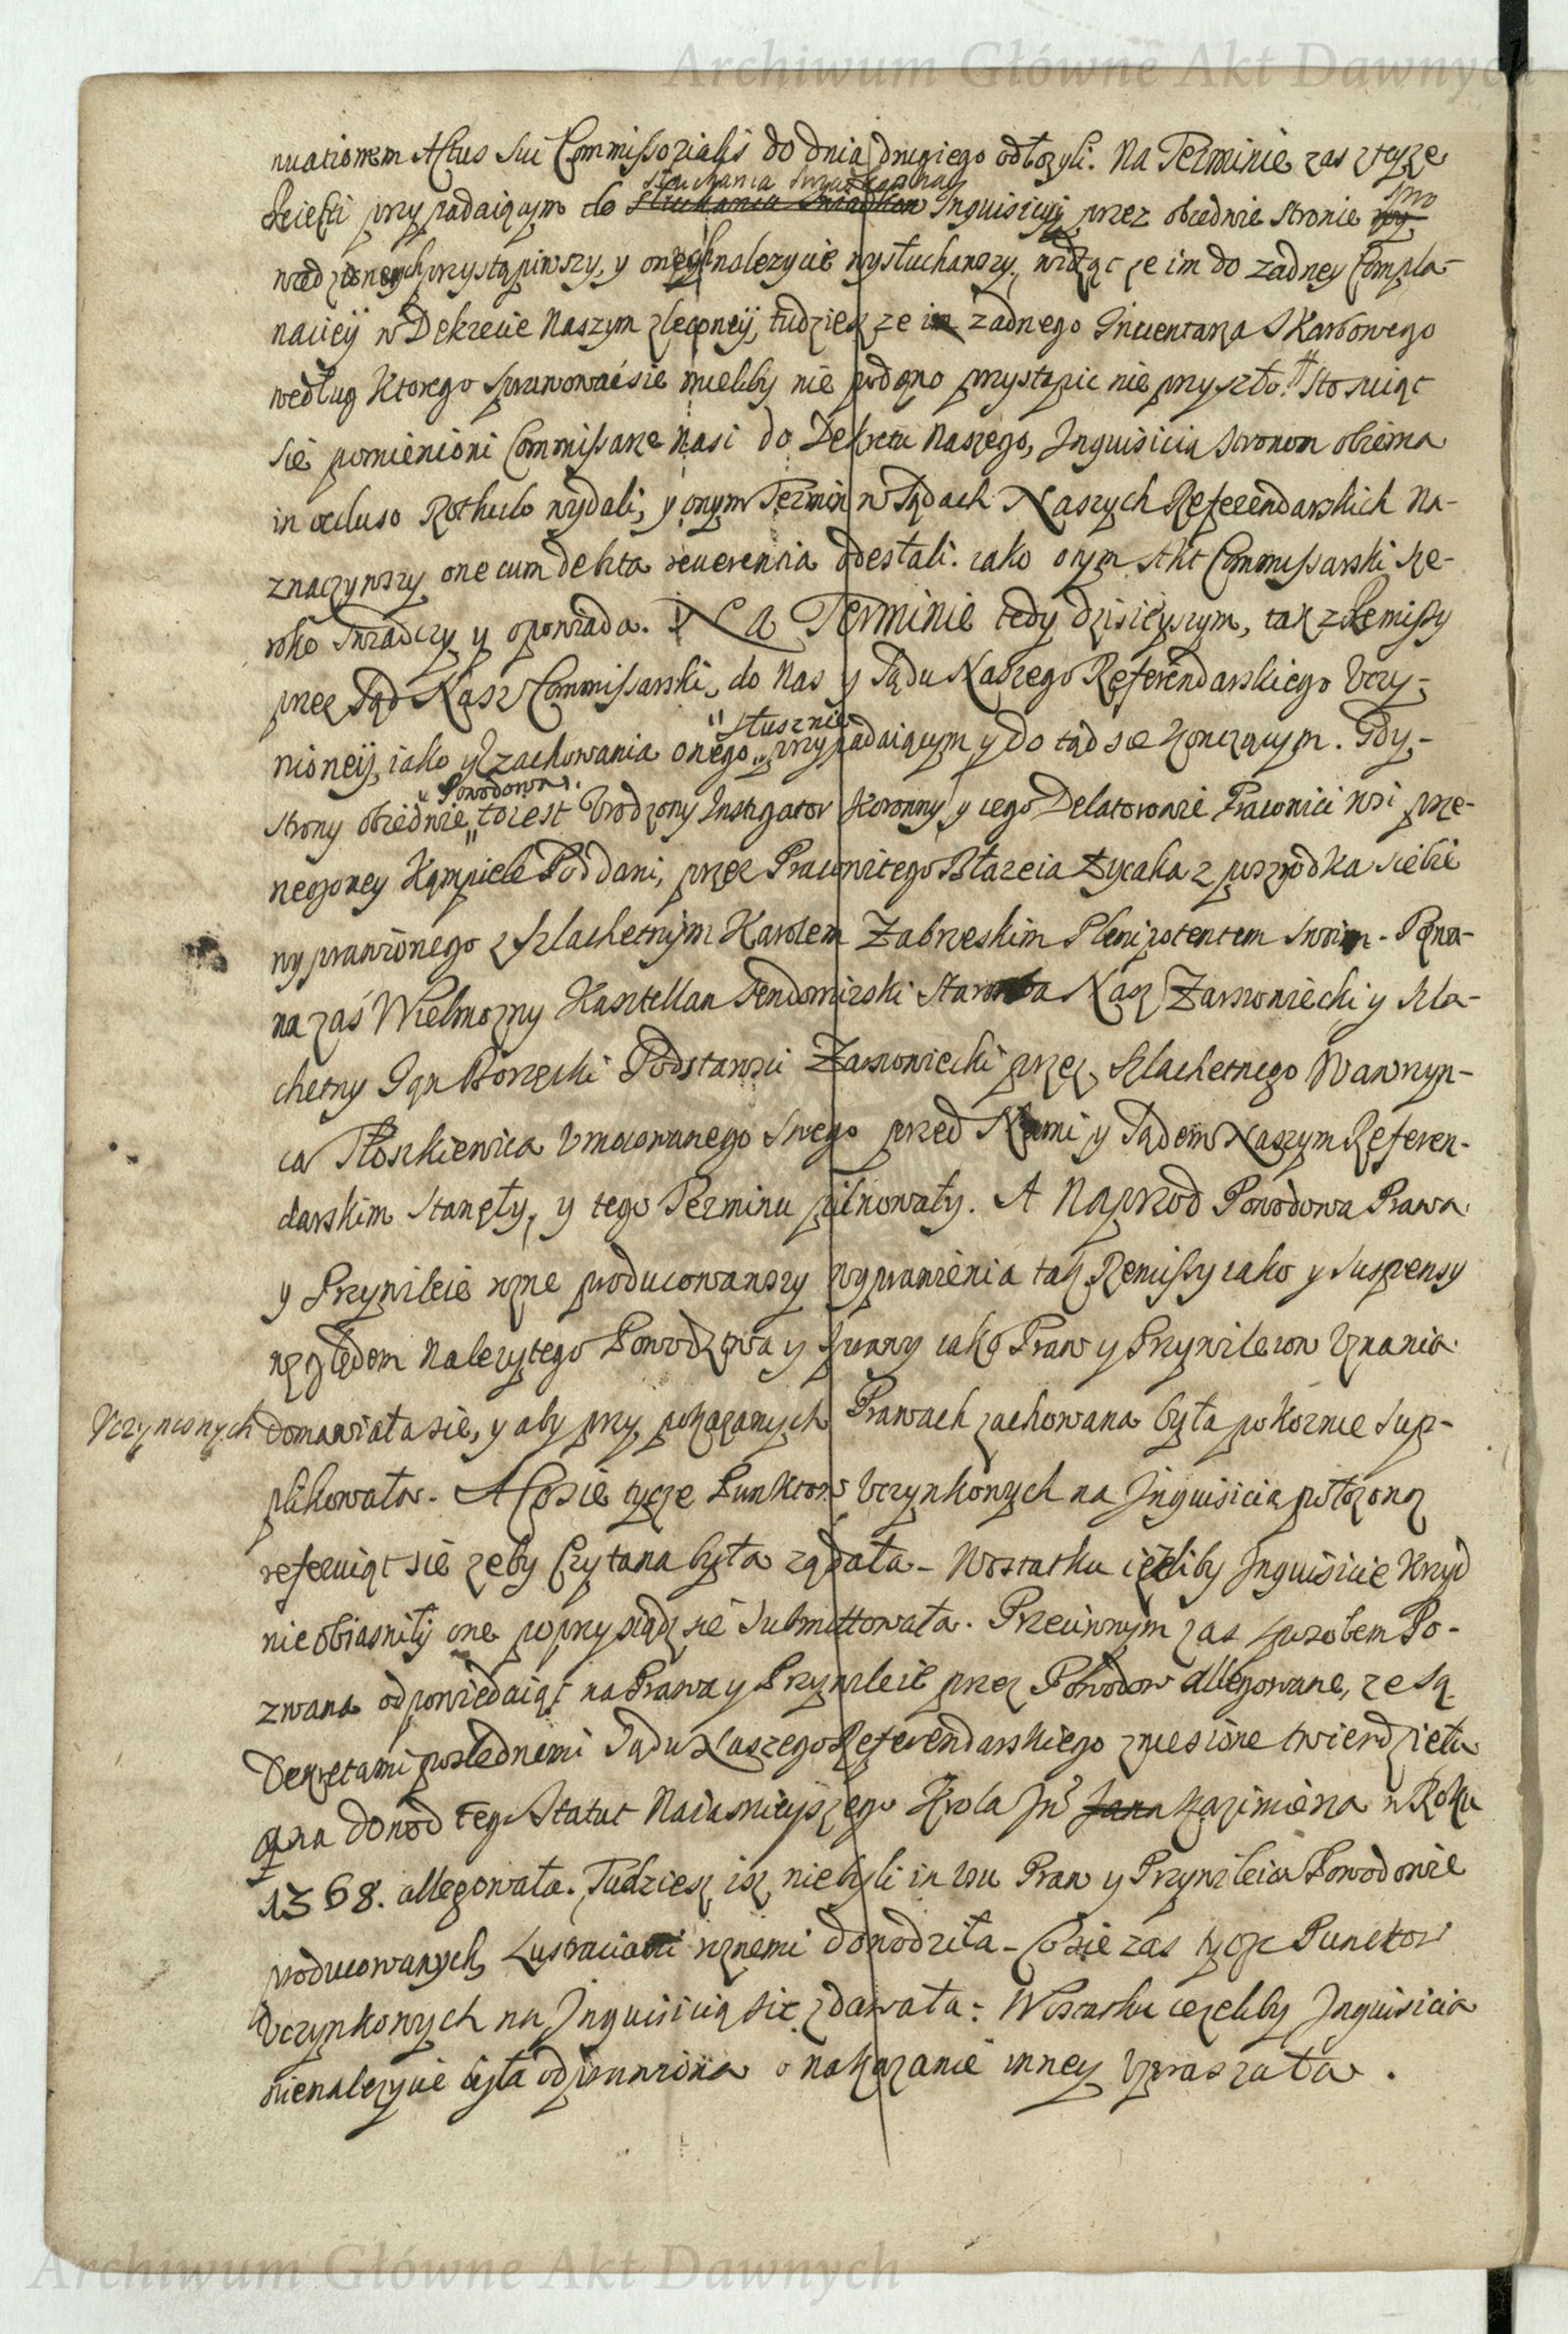 Archiwum Główne Akt Dawnych
nuationem Actus sui Commissorialis do dnia drugiego odłozyli. Na Terminie zas z teyze
słuchania swiadkow na
przypadaiącym do słuchania swiadkow Inquisicyi przez obiednie stronie wy spro
wadzonych przystąpiwszy, y onych nalezycie wysłuchawszy, widząc ze im do zadney Compla-
naciey w Dekrecie Naszym zleconey, tudziesz ze im zadnego Inwentarza Skarbowego
według ktorego sprawowac sie mieliby nie podano przystąpic nie przyszło. # Stosuiąc
sie pomienioni Commissarze Nasi do Dekretu Naszego, Inquisicią stronom obiema
in occluso Rothulo wydali, y onym Termin w Sądach Naszych Referendarskich Na-
znaczywszy one cum debita reuerentia odesłali. iako onym Akt Commissarski sze-
roko swiadczy y opowiada. Na Terminie tedy dzisieyszym, tak z Remissy
przez Sąd Nasz Commissarski, do Nas y Sądu Naszego Referendarskiego Vczy-
" słusznie
nioney, iako y zachowania onego " przypadaiącym y do tąd sie konczącym. Gdy
" Powodowa
strony obiednie " to iest Vrodzony Instigator Koronny y iego Delatorowie Pracowici wsi prze-
negoney Kąmpiele Poddani, przez Pracowitego Błazeia Zycaka z poszrodka siebie
wyprawionego z Szlachetnym Karolem Zabrzeskim Plenipotentem swoim - Pozwa-
na zaś Wielmozny Kasztellan Sendomirski Starosta Nasz Zarnowiecki y Szla-
chetny Jan Borzęcki Podstarosci Zarnowiecki przez Szlachetnego Wawrzyn-
ca Tłoszkiewica Vmocowanego swego przed Nami y Sądem Naszym Referen-
darskim stanęły, y tego Terminu pilnowały. A Naprzod Powodowa Prawa
y Przywileie rozne producowawszy wyprawienia tak Remissy iako y Suspensy
względem nalezytego Powodztwa y sprawy iako Praw y Przywileiow Vznania
Vczynionych
domawiała sie, y aby przy pokazanych Prawach zachowana była pokornie sup-
plikowała. A co sie tycze Punktow Vczynkowych na Inquisicią położoną
referuiąc sie zeby Czytana była ządała - Wostatku iezeliby Inquisicie Krzyd
nie obiasniły one poprzysiądz sie submittowała. Przeciwnym zas sposobem Po-
zwana odpowiedaiąc na Prawa y Przywileie przez Powodow allegowane, ze są
Dekretami poslednemi Sądu Naszego Referendarskiego zniesione twierdzieła
a na dowod tego Statut Naiasnieyszego Krola Jmci Jana Kazimierza w Roku
1368. allegowała. Tudziesz isz niebyli in usu Praw y Przywileiow Powodowie
producowanych, Lustraciami roznemi dowodziła - Co sie zas tycze Punctow
Vczynkowych na Inquisicią sie zdawała: Wostatku iezeliby Inquisicia
nienalezycie była odprawiona o nakazanie inney Vpraszała.
Archiwum Główne Akt Dawnych